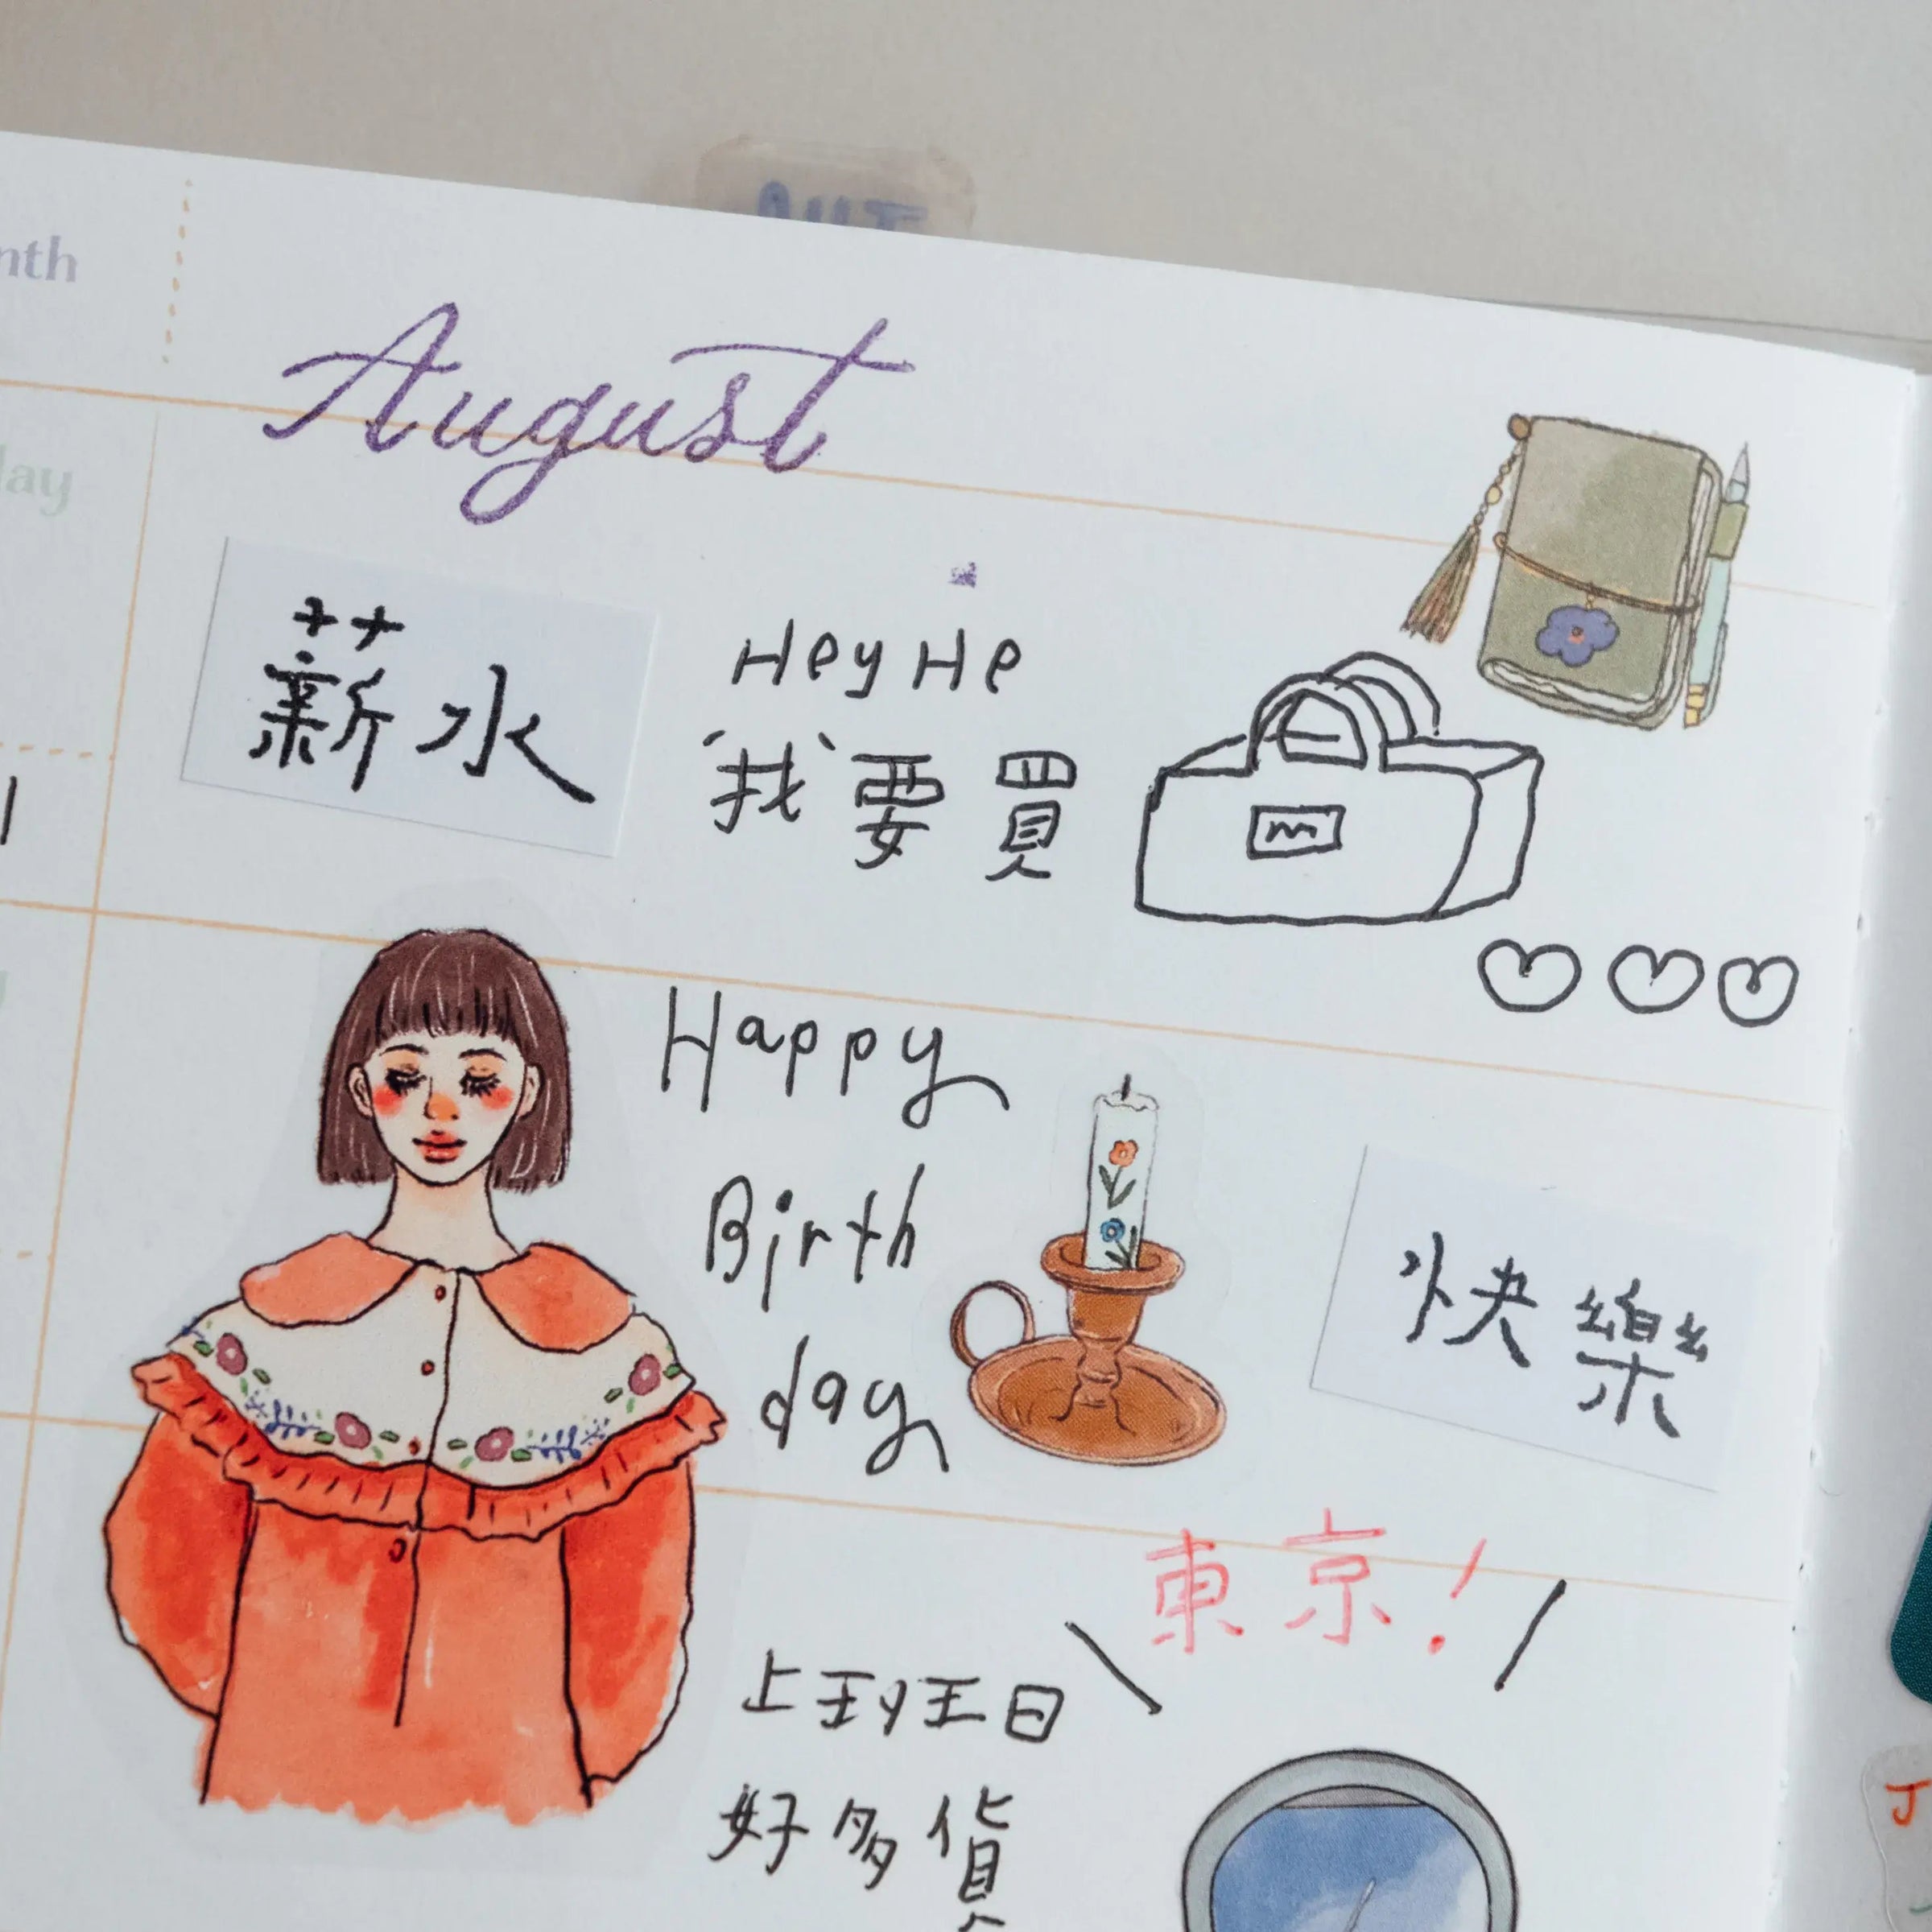 nth
August
lay
薪水
Hey He
我要買
m
Happy
Birth
day
快樂
東京！
上班日
好多貨
J